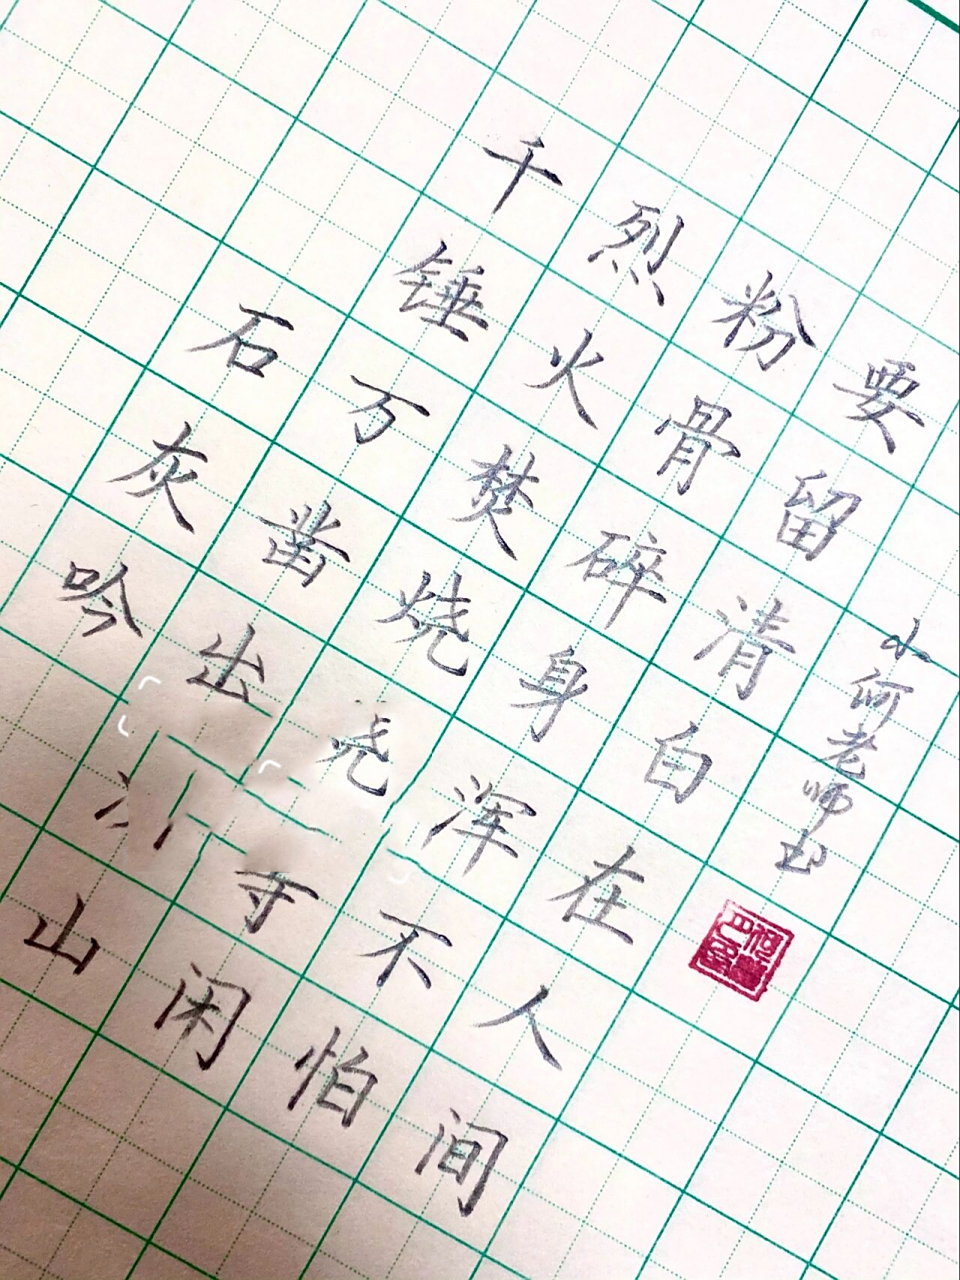 石灰吟
千锤万凿出山
烈火焚烧尧寺闲
粉骨碎身浑不怕
要留清白在人间
小何老师书